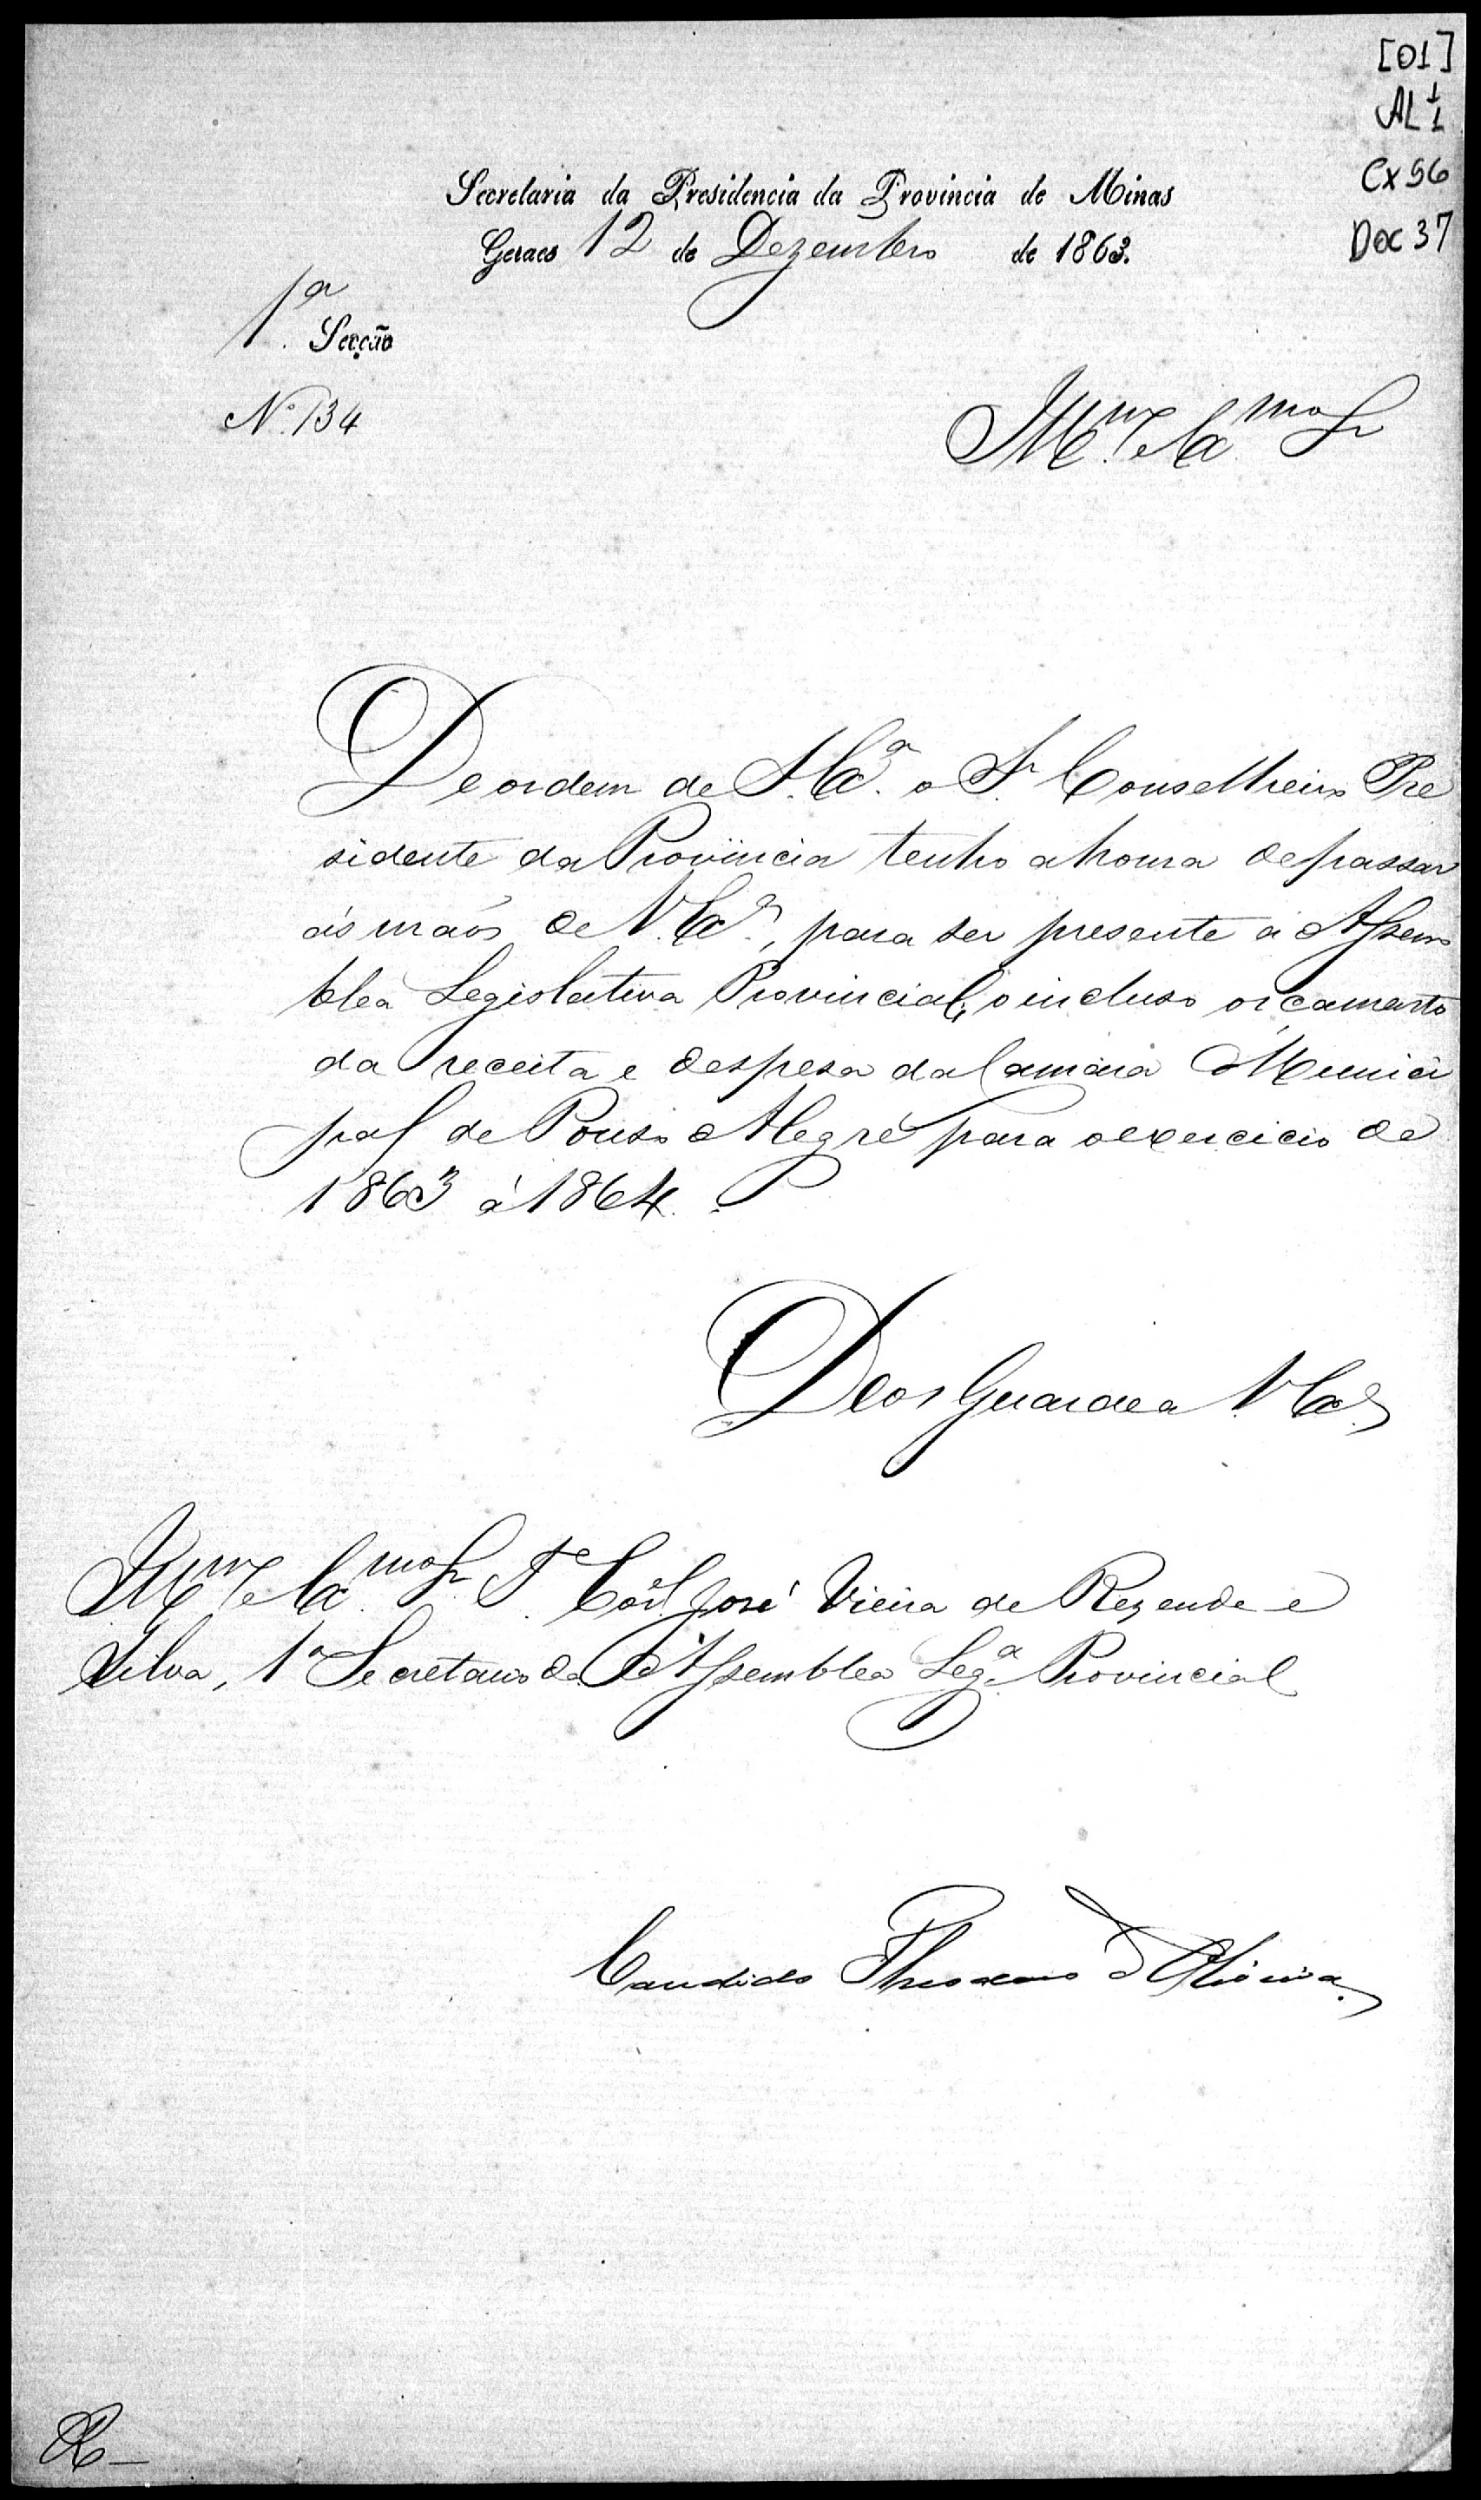 [01]
AL 1/1
Cx 56
Doc 37
Secretaria da Presidencia da Provincia de Minas
Geraes 12 de Dezembro de 1863.
1ª Secção
Nº 134
Illmº e Exmº Sr
De ordem de S. Exª o Sr Conselheiro Pre
sidente da Provincia tenho a honra de passar
ás mãos de V. Exª, para ser presente á Assem
blea Legislativa Provincial, o incluso orçamento
da receita e despesa da Camara Munici
pal de Pouso Alegre para o exercicio de
1863 á 1864.
Deos Guarde a V. Exª
Illmº e Exmº Sr Te Coel José Vieira de Rezende e
Silva, 1º Secretario da Assemblea Legª Provincial
Candido Theodoro d'Oliveira.